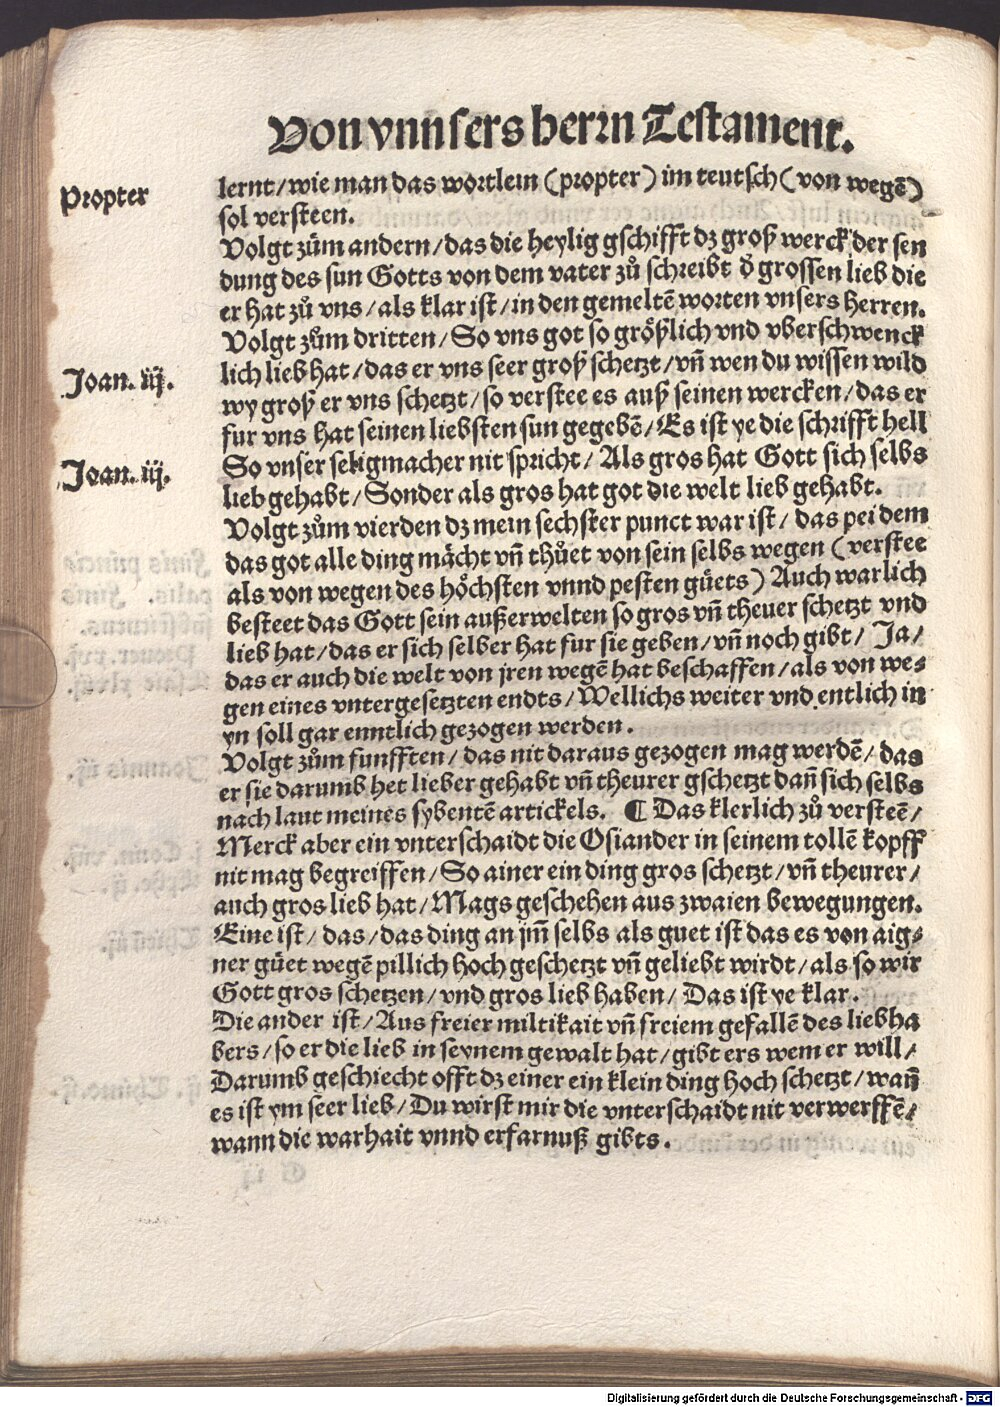 Von vnnsers herrn Testament.
Propter
lernt/wie man das wortlein (propter) im teutsch (von wegē)
sol versteen.
Volgt zům andern/das die heylig gschifft dz groß werck der sen
dung des sun Gotts von dem vater zů schreibt d̕ grossen lieb die
er hat zů vns/als klar ist/in den gemeltē worten vnsers herren.
Volgt zům dritten/So vns got so größlich vnd vberschwenck
Joan. iij.
lich lieb hat/das er vns seer groß schetzt/vn̄ wen du wissen wild
wy groß er vns schetzt/so verstee es auß seinen wercken/das er
fur vns hat seinen liebsten sun gegebē/Es ist ye die schrifft hell
Joan. iij.
So vnser seligmacher nit spricht/Als gros hat Gott sich selbs
lieb gehabt/Sonder als gros hat got die welt lieb gehabt.
Volgt zům vierden dz mein sechster punct war ist/das pei dem
das got alle ding mächt vn̄ thůet von sein selbs wegen (verstee
als von wegen des höchsten vnnd pesten güets) Auch warlich
besteet das Gott sein außerwelten so gros vn̄ theuer schetzt vnd
lieb hat/das er sich selber hat fur sie geben/vn̄ noch gibt/Ja/
das er auch die welt von jren wegē hat beschaffen/als von we⸗
gen eines vntergesetzten endts/Wellichs weiter vnd entlich in
yn soll gar enntlich gezogen werden.
Volgt zům funfften/das nit daraus gezogen mag werdē/das
er sie darumb het lieber gehabt vn̄ theurer gschetzt dan̄ sich selbs
nach laut meines sybentē artickels. ¶ Das klerlich zů versteē/
Merck aber ein vnterschaidt die Osiander in seinem tollē kopff
nit mag begreiffen/So ainer ein ding gros schetzt/vn̄ theurer/
auch gros lieb hat/Mags geschehen aus zwaien bewegungen.
Eine ist/das/das ding an jm̄ selbs als guet ist das es von aig⸗
ner güet wegē pillich hoch geschetzt vn̄ geliebt wirdt/als so wir
Gott gros schetzen/vnd gros lieb haben/Das ist ye klar.
Die ander ist/Aus freier miltikait vn̄ freiem gefallē des liebha
bers/so er die lieb in seynem gewalt hat/gibt ers wem er will/
Darumb geschiecht offt dz einer ein klein ding hoch schetzt/wan̄
es ist ym seer lieb/Du wirst mir die vnterschaidt nit verwerffē/
wann die warhait vnnd erfarnuß gibts.
Digitalisierung gefördert durch die Deutsche Forschungsgemeinschaft - DFG